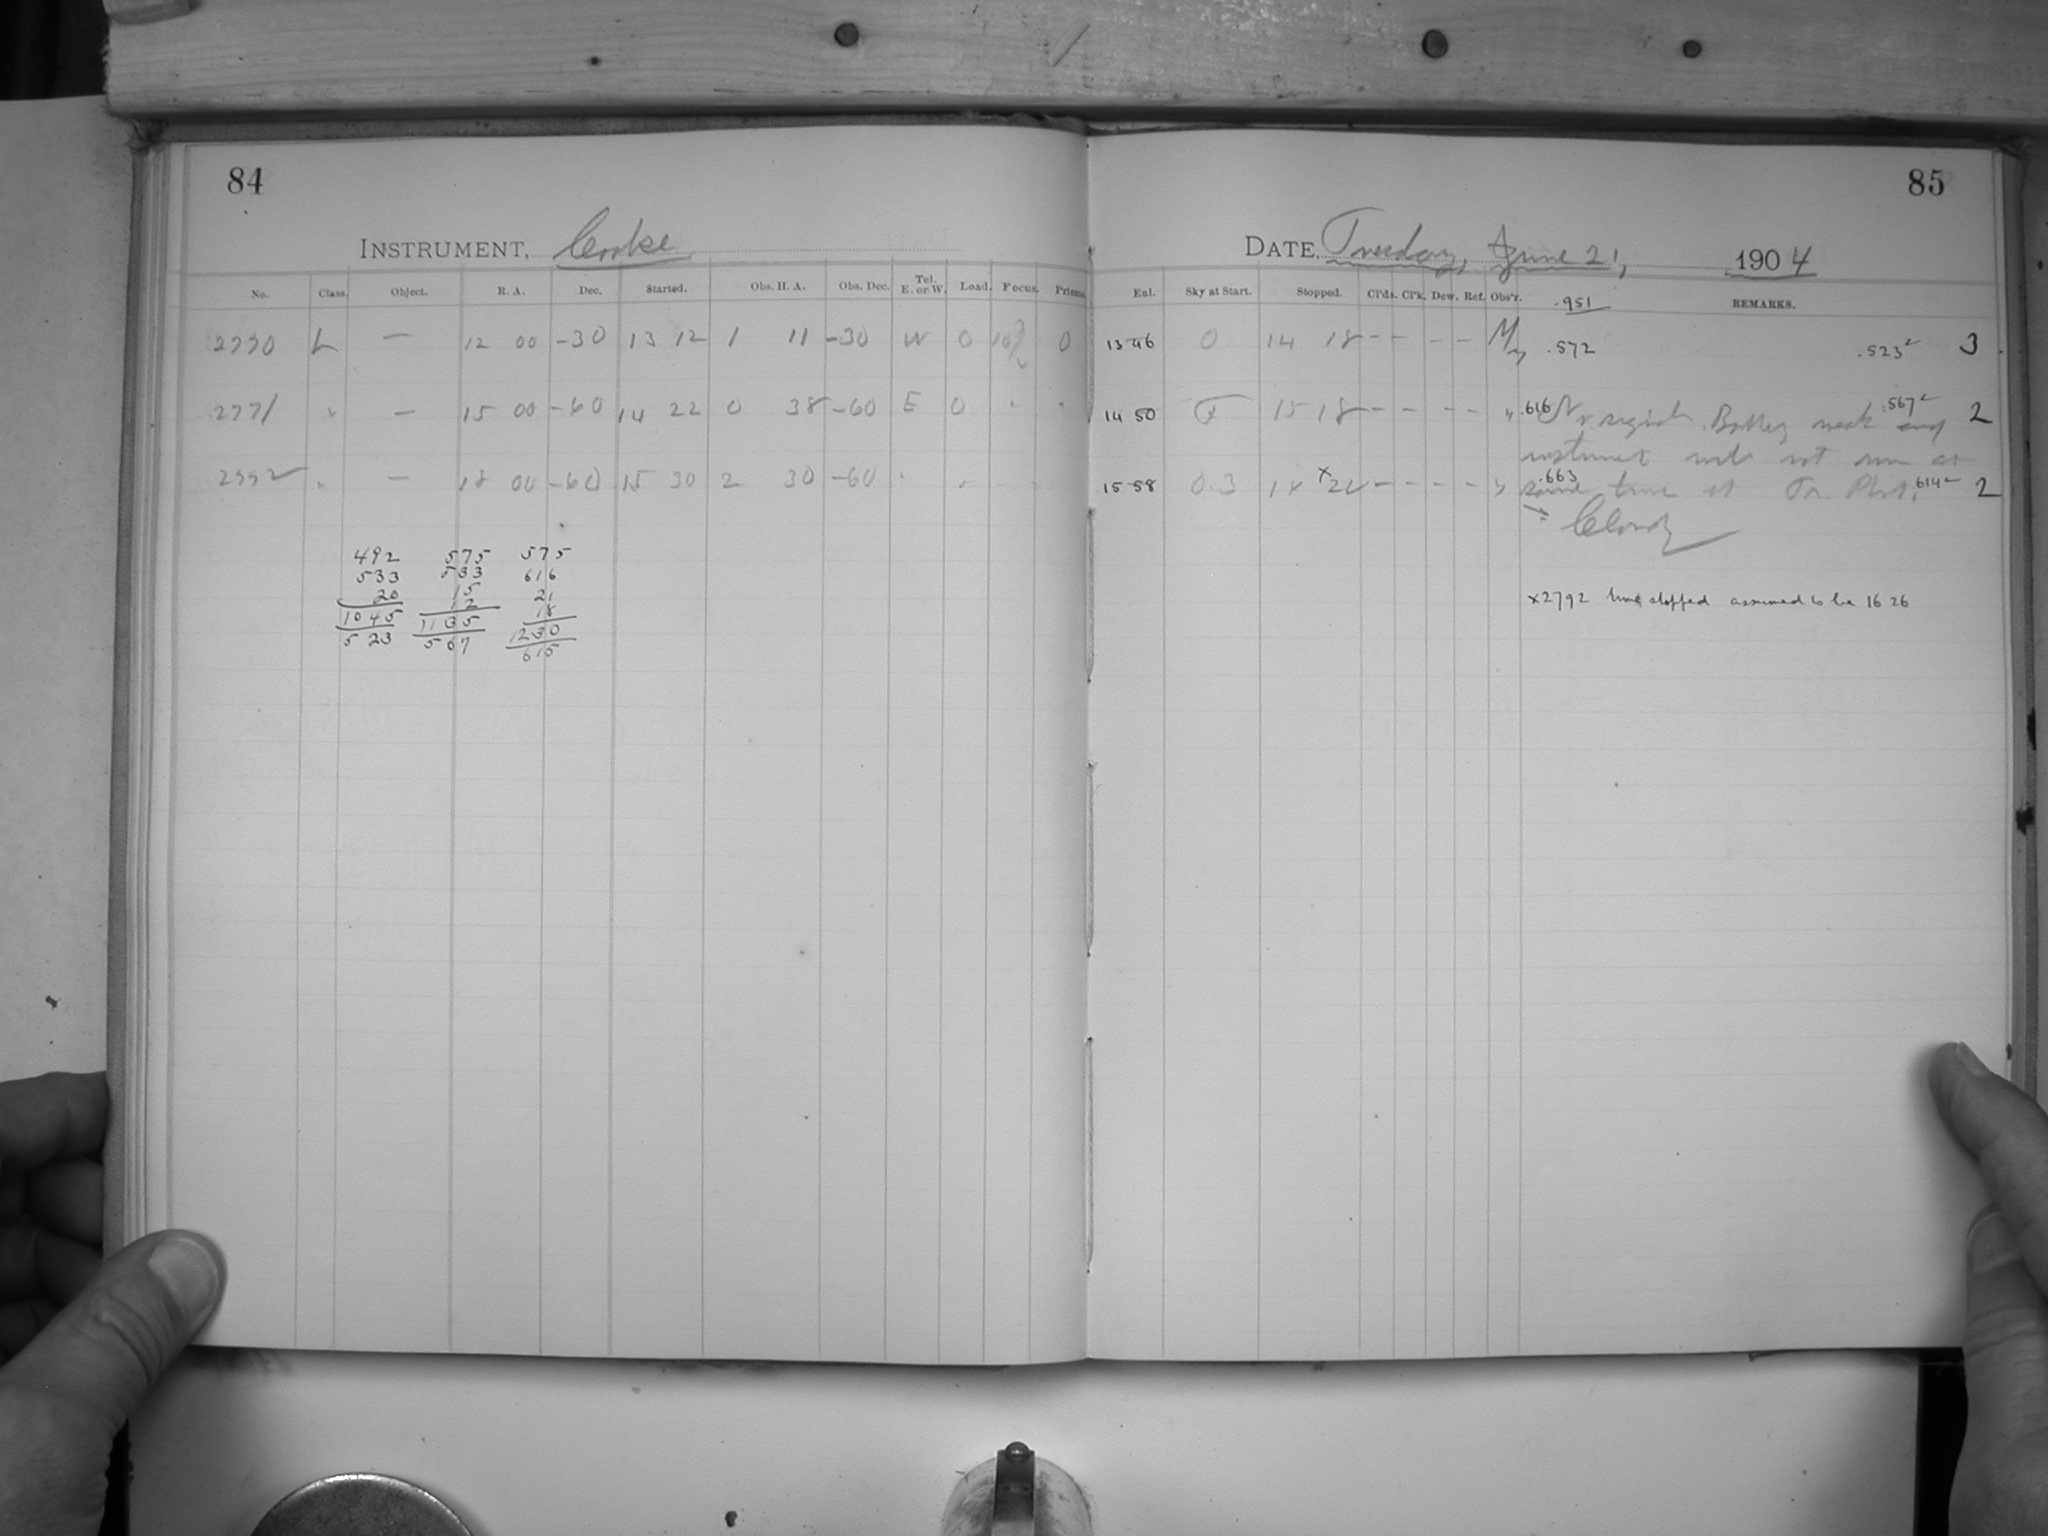 84
INSTRUMENT, Cooke
No. Class. Object. R. A. Dec. Started. Obs. H. A. Obs. Dec. Tel. E. or W. Load. Focus. Prisms.
2790 L — 12 00 -30 13 12 1 11 -30 W 0 0
2791 " — 15 00 -60 14 22 0 38 -60 E 0 " "
2792 " — 18 00 -60 15 30 2 30 -60 "
492 575 575
533 533 616
20 15 21
12 18
1045 1135 1230
523 567 615
85
DATE, Tuesday, June 21, 1904
Enl. Sky at Start. Stopped. Cl'ds. Cl'k. Dew. Ref. Obs'r. .951 REMARKS.
13 46 0 14 18 - - - - My .572 .523 3
14 50 15 18 - - - - " .616 No regist. Battery weak and .567 2
instrument will not run at
15 58 0.3 - - - - " .663 same time as .614 2
Cloudy
x2792 time stopped assumed to be 16 26